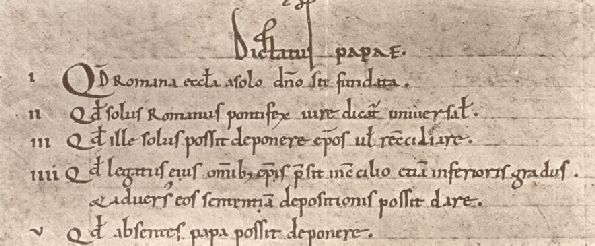 Dictatus papae.
i Qd Romana eccla a solo dno sit fundata.
ii Qd solus Romanus pontifex iure dicat universal.
iii Qd ille solus possit deponere epos ul reciliare.
iiii Qd legatus eius omib; epis psit in cilio etia inferioris gradus.
& adversus eos sententia depositionis possit dare.
v Qd absentes papa possit deponere.